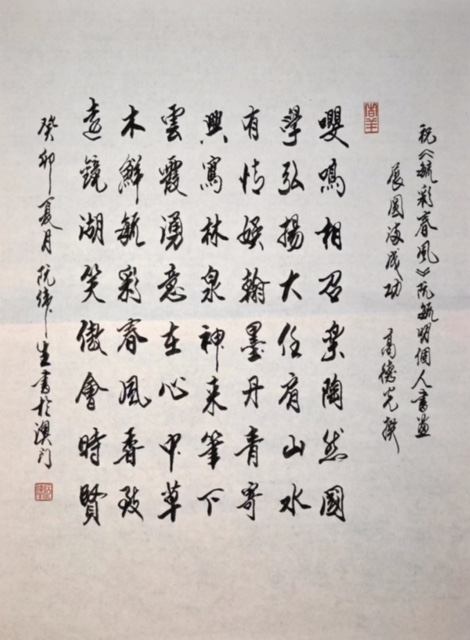 祝《毓彩春風》阮毓明個人書畫
展圓滿成功 高德光撰
嚶鳴相召樂陶然國
學弘揚大任肩山水
有情娛翰墨丹青寄
興寫林泉神來筆下
雲霞湧意在心中草
木鮮毓彩春風香致
遠鏡湖笑傲會時賢
癸卯夏月阮偉生書於澳门